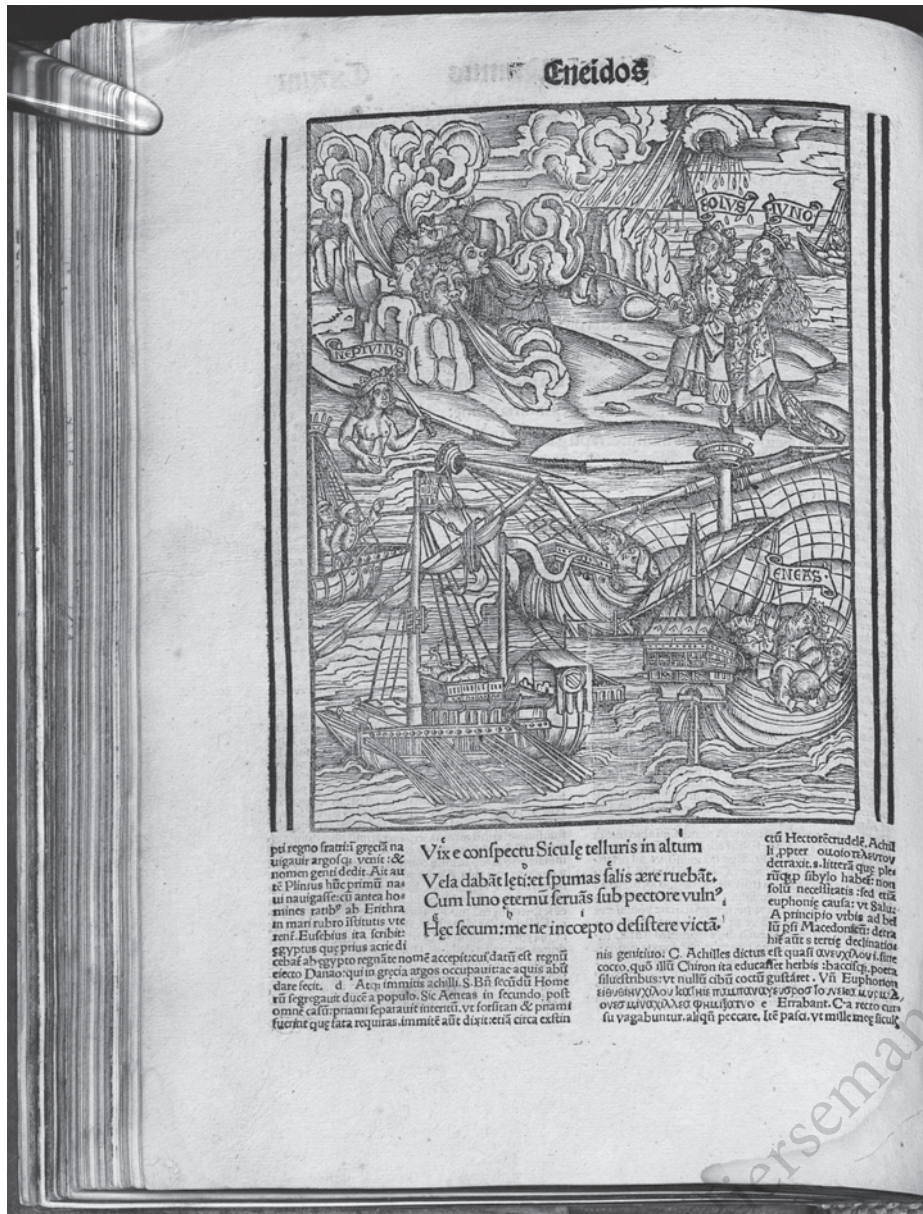 Eneidos
EOLVS
IVNO
NEPTVNVS
ENEAS
pti regno fratri: ĩ greciã na
uigauit argosq; venit: &
nomen genti dedit. Ait au
tẽ Plinius hũc primũ na
ui nauigasse: cũ antea ho
mines ratibꝰ ab Erithra
in mari rubro istitutis vte
renť. Eusebius ita scribit:
egyptus que prius aerie di
cebať ab egypto regnãte nomẽ accepit: cuiꝰ datũ est regnũ
eiecto Danao: qui in grecia argos occupauit: ac aquis abũ
dare fecit. d Atq; immitis achilli. S. Bñ secũdũ Home
rũ segregauit ducẽ a populo. Sic Aeneas in secundo post
omnẽ casũ: priami separauit interitũ, vt forsitan & priami
fuerint que fata requiras. immitẽ aũt dixit: etiã circa extin
Vix e conspectu Siculę telluris in altum
Vela dabãt lęti: et spumas salis ære ruebãt.
Cum Iuno ęternũ seruãs sub pectore vulnꝰ
Hęc secum: me ne incœpto desistere victã.
ctũ Hectorẽ crudelẽ. Achil
li, ppter
detraxit. s. litterã que ple
rũq; p sibylo habeť: non
solũ necessitatis: sed etiã
euphonię causa: vt Salu:
A principio vrbis ad bel
lũ psi Macedonicũ: detra
hiť aũt s tertię declinatio
nis genitiuo: C. Achilles dictus est quasi sine
cocto, quõ illũ Chiron ita educasset herbis: baccisq; poeta
siluestribus: vt nullũ cibũ coctũ gustaret. Vñ Euphorion
e Errabant. C. a recto cur
su vagabuntur. aliqñ peccare. Itẽ pasci. vt mille meę siculę